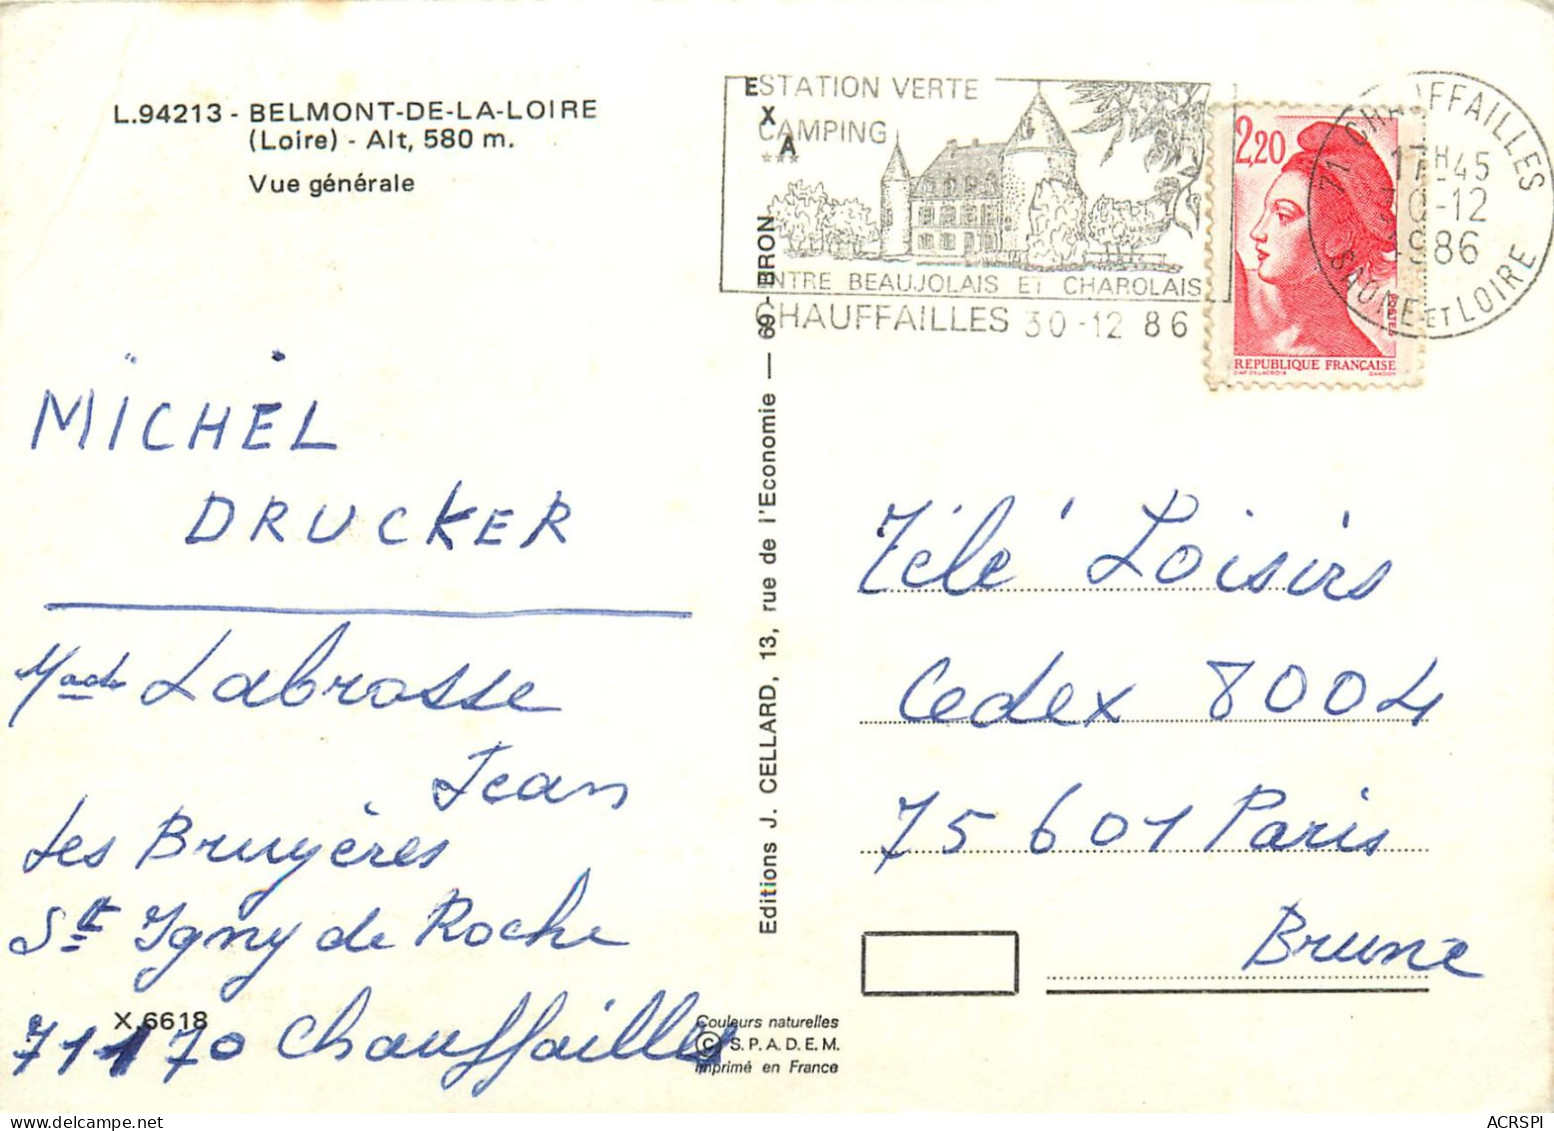 L.94213 - BELMONT-DE-LA-LOIRE
(Loire) - Alt, 580 m.
Vue générale
MICHEL
DRUCKER
Made Labrosse
Jean
Les Bruyères
St Igny de Roche
71170 Chauffailles
X.6618
EXA
Editions J. CELLARD, 13, rue de l'Economie — 69 - BRON
Couleurs naturelles
© S.P.A.D.E.M.
Imprimé en France
STATION VERTE
CAMPING
***
ENTRE BEAUJOLAIS ET CHAROLAIS
CHAUFFAILLES 30-12 86
2,20
POSTES
REPUBLIQUE FRANÇAISE
D'AP. DELACROIX GANDON
71 CHAUFFAILLES
17H45
30-12
1986
SAONE-ET-LOIRE
Télé Loisirs
Cedex 8004
75601 Paris
Brune
ACRSPI